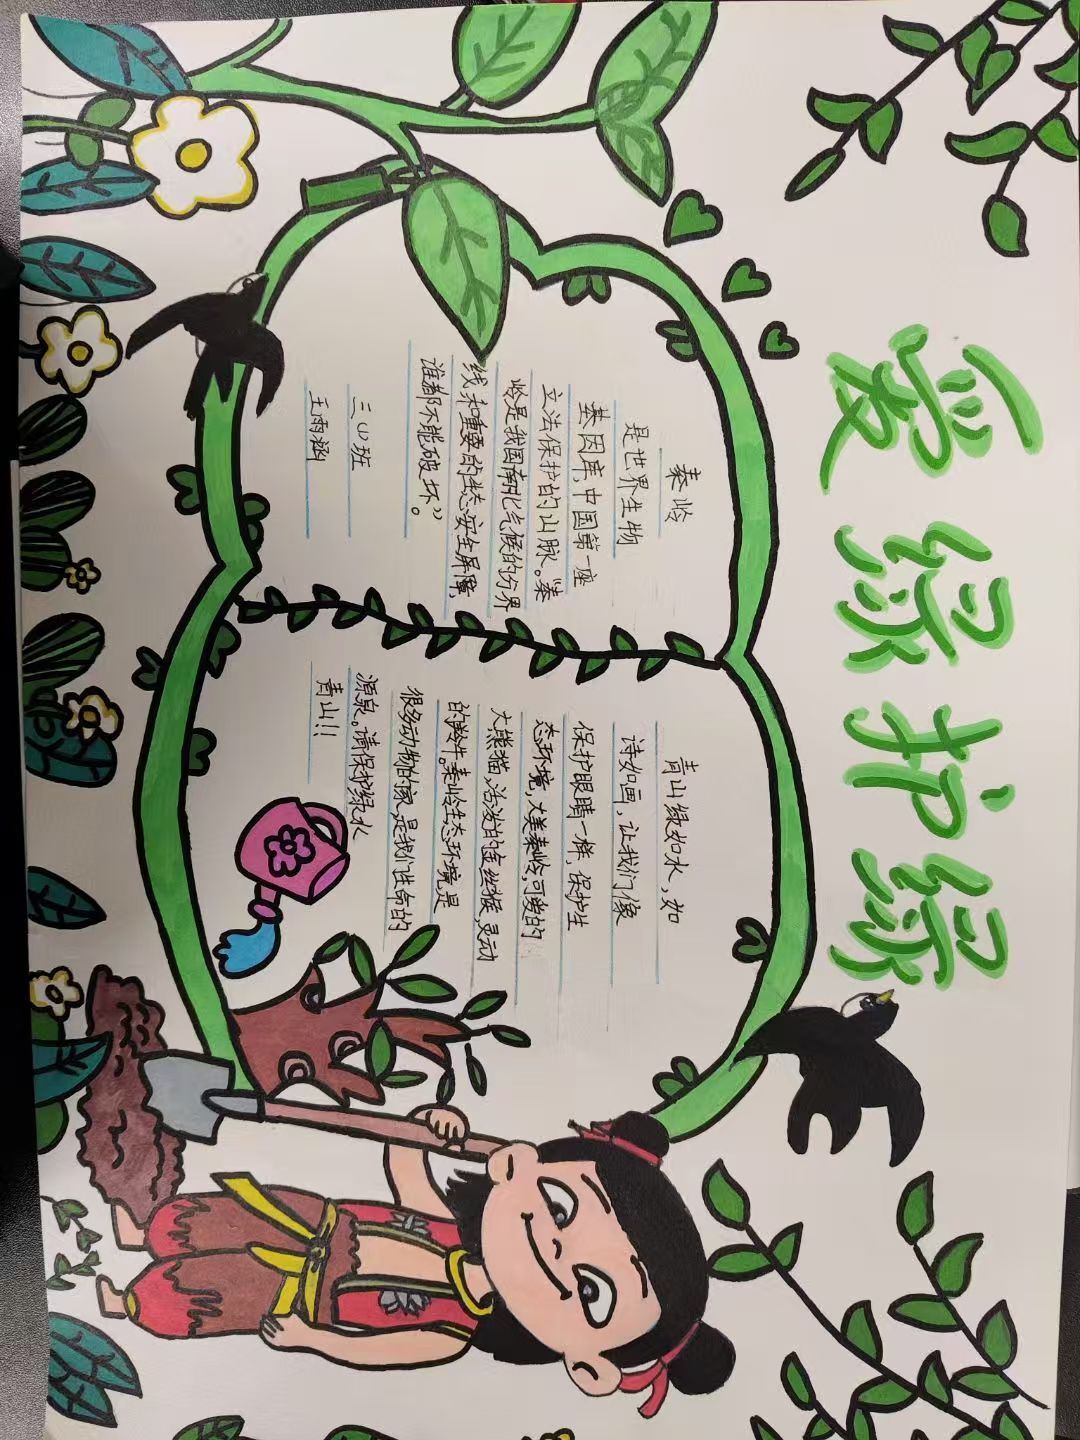 爱绿护绿
秦岭
是世界生物
基因库，中国第一座
立法保护的山脉。秦
岭是我国南北气候的分界
线和重要的生态安全屏障
谁都不能破坏”。
三(1)班
王雨涵
青山绿如水，如
诗如画，让我们像
保护眼睛一样，保护生
态环境，大美秦岭可爱的
大熊猫，活泼的金丝猴，灵动
的羚牛。秦岭生态环境，是
很多动物的家，是我们生命的
源泉。请保护绿水
青山!!